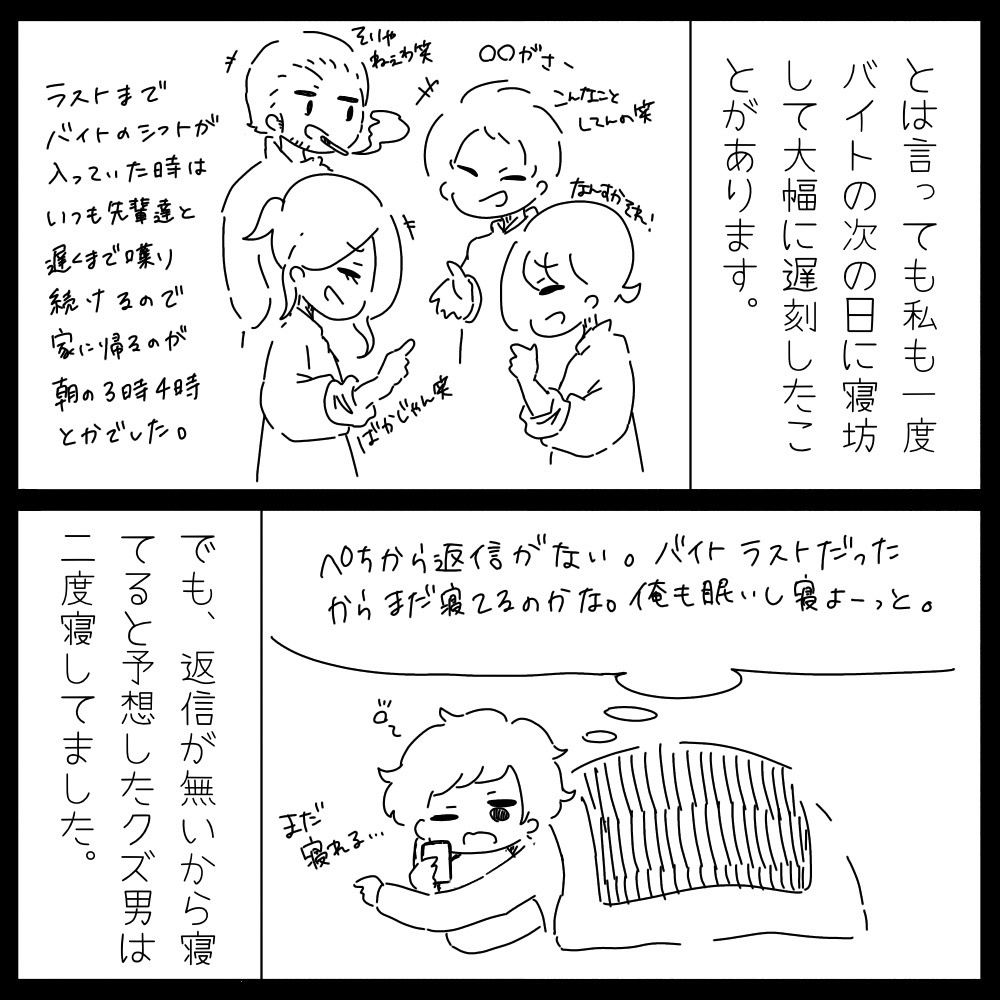 とは言っても私も一度
バイトの次の日に寝坊
して大幅に遅刻したこ
とがあります。
○○がさー
こんなこと
してんの笑
そりゃ
ねぇわ笑
なんすかそれ!
ばかじゃん笑
ラストまで
バイトのシフトが
入っていた時は
いつも先輩達と
遅くまで喋り
続けるので
家に帰るのが
朝の3時4時
とかでした。
ぺちから返信がない。バイトラストだった
からまだ寝てるのかな。俺も眠いし寝よーっと。
まだ
寝れる…
でも、返信が無いから寝
てると予想したクズ男は
二度寝してました。